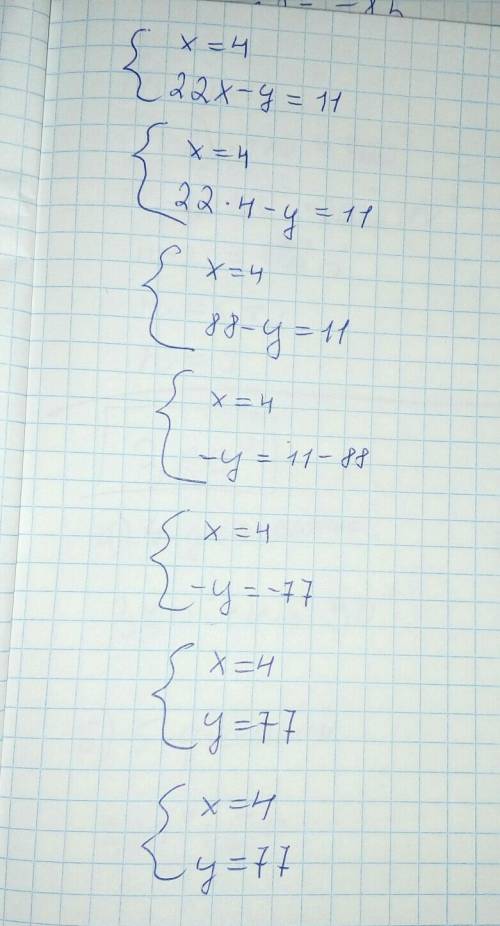 x = 4
22x - y = 11
x = 4
22 · 4 - y = 11
x = 4
88 - y = 11
x = 4
-y = 11 - 88
x = 4
-y = -77
x = 4
y = 77
x = 4
y = 77